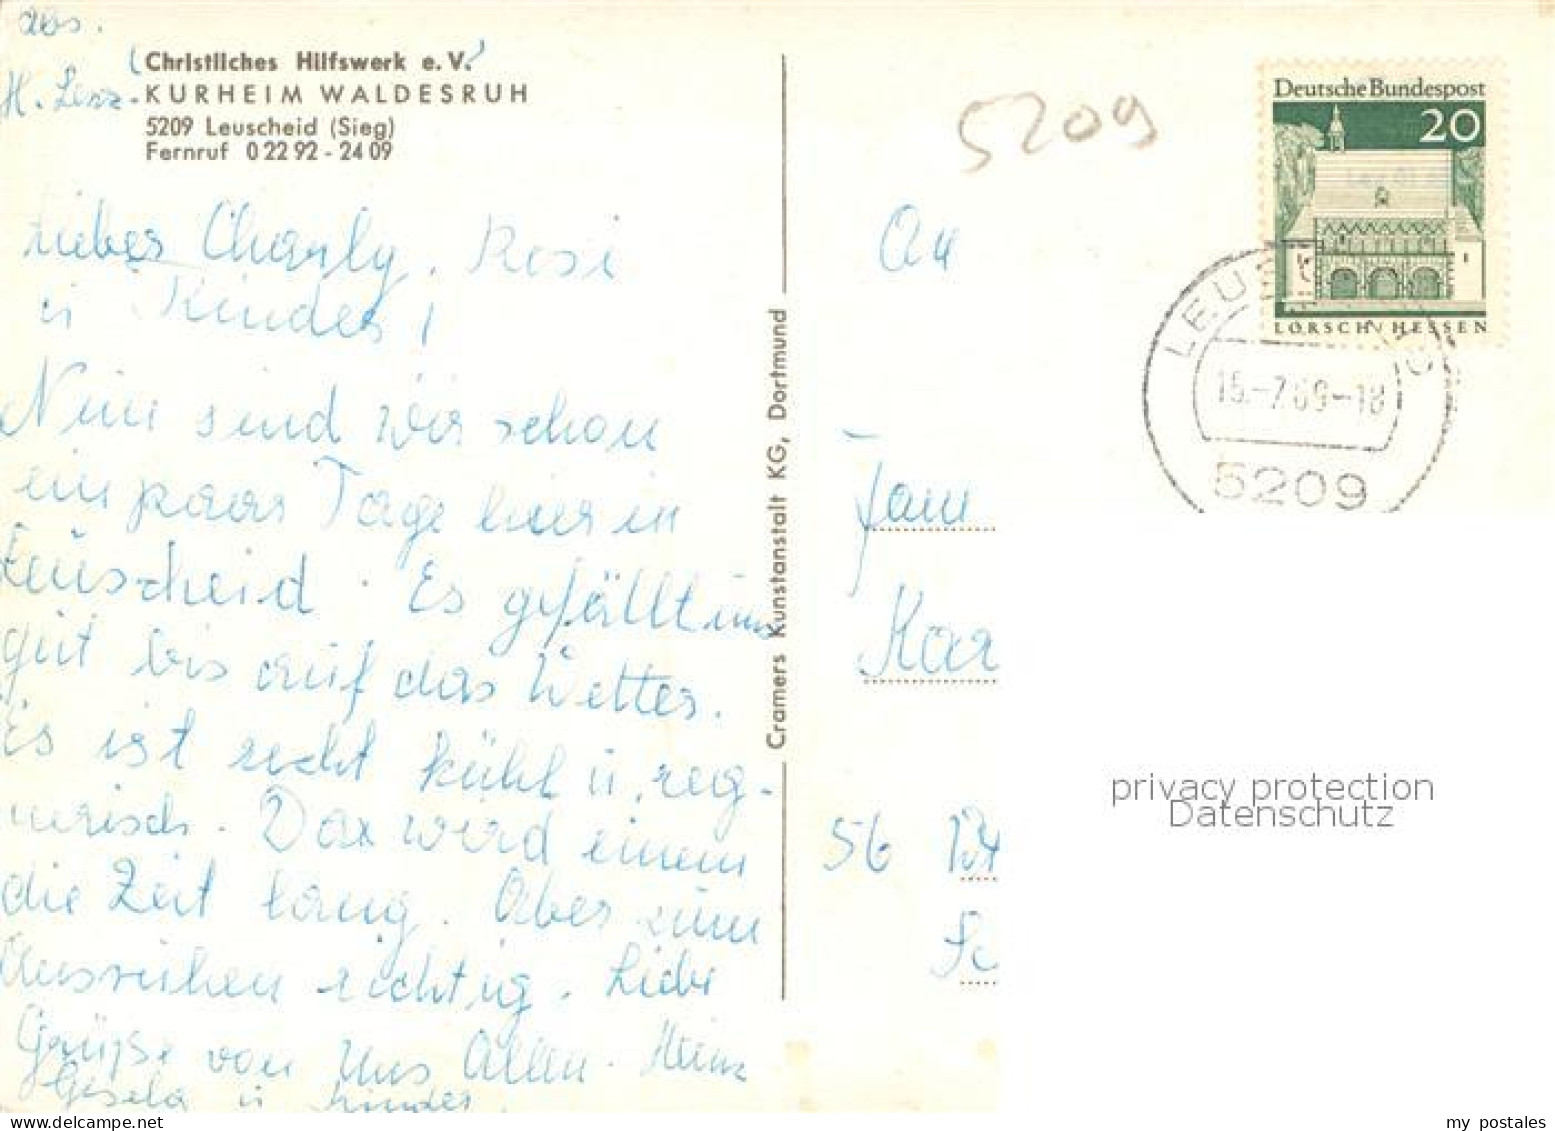 Abs.
(Christliches Hilfswerk e.V.)
H. Lenz. KURHEIM WALDESRUH
5209 Leuscheid (Sieg)
Fernruf 0 22 92 - 24 09
Lieber Charly, Rosi
u Kinder!
Nun sind wir schon
ein paar Tage hier in
Leuscheid. Es gefällt uns
gut bis auf das Wetter.
Es ist recht kühl u. reg-
nerisch. Da wird einem
die Zeit lang. Aber zum
Ausruhen richtig. Liebe
Grüße von Uns Allen. Heinz
Gisela u Kinder.
Cramers Kunstanstalt KG, Dortmund
5209
Deutsche Bundespost
20
LORSCH/HESSEN
15.-7.69-18
5209
An
Fam
Kar
56
privacy protection
Datenschutz
my postales